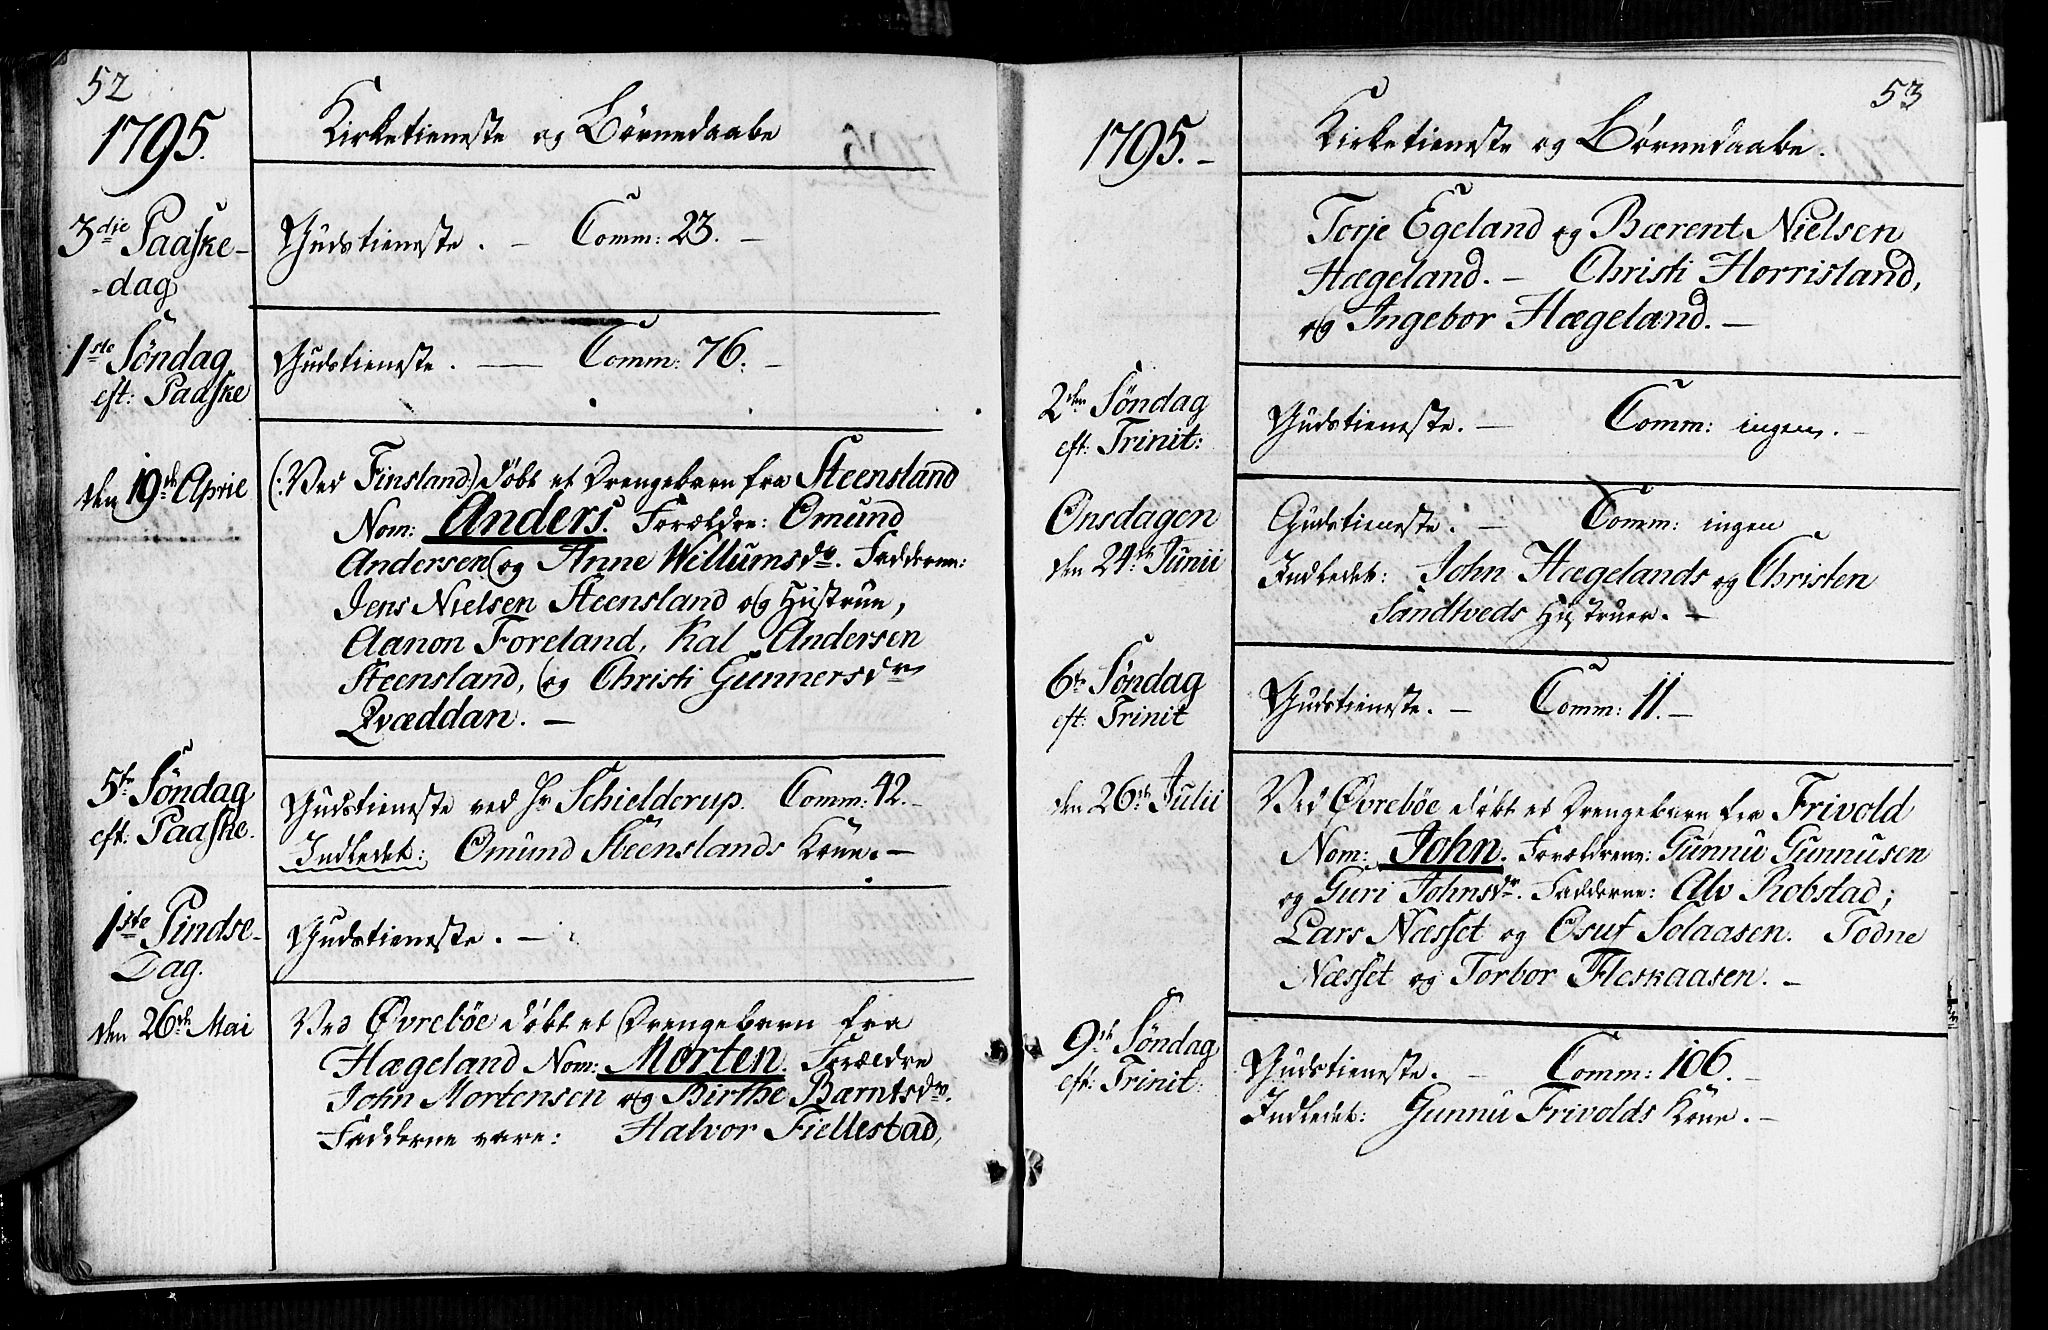 52
1795.
Kirketieneste og Børnedaabe
3die Paaske-
-dag
Gudstieneste. — Comm: 23. —
1ste Søndag
eft: Paaske
Gudstieneste. — Comm: 76. —
den 19de April
(: Ved Finsland) døbt et Drengebarn fra Steensland
Nom: Anders. Forældre: Omund
Andersen og Anne Willumsdr. Fadderne:
Jens Nielsen Steensland og Hustrue,
Aanon Foreland, Kal Andersen
Steensland, og Christi Gunnersdr
Qvæddan. —
5te Søndag
eft: Paaske.
Gudstieneste ved Hr Schielderup. Comm: 42. —
Indledet: Omund Steenslands Kone. —
1ste Pindse-
Dag.
Gudstieneste. —
den 26de Mai
Ved Øvrebøe døbt et Drengebarn fra
Hægeland Nom: Morten. Forældre
John Mortensen og Birthe Barntsdr.
Fadderne vare: Halvor Fiellestad,
53
1795. —
Kirketieneste og Børnedaabe.
Torje Egeland og Bærent Nielsen
Hægeland. — Christi Horrisland,
og Ingebor Hægeland. —
2den Søndag
eft: Trinit:
Gudstieneste. — Comm: ingen. —
Onsdagen
den 24de Junii
Gudstieneste. — Comm: ingen
Indledet: John Hægelands og Christen
Sandtveds Hustruer. —
6te Søndag
eft: Trinit
Gudstieneste. — Comm: 11. —
den 26de Julii
Ved Øvrebøe døbt et Drengebarn fra Frivold
Nom: John. Forældrene: Gunnu Gunnusen
og Guri Johnsdr. Fadderne: Alv Robstad;
Lars Næsset og Osuf Solaasen. Todne
Næsset og Torbor Fleskaasen. —
9de Søndag
eft: Trinit:
Gudstieneste. — Comm: 106. —
Indledet: Gunnu Frivolds Kone. —